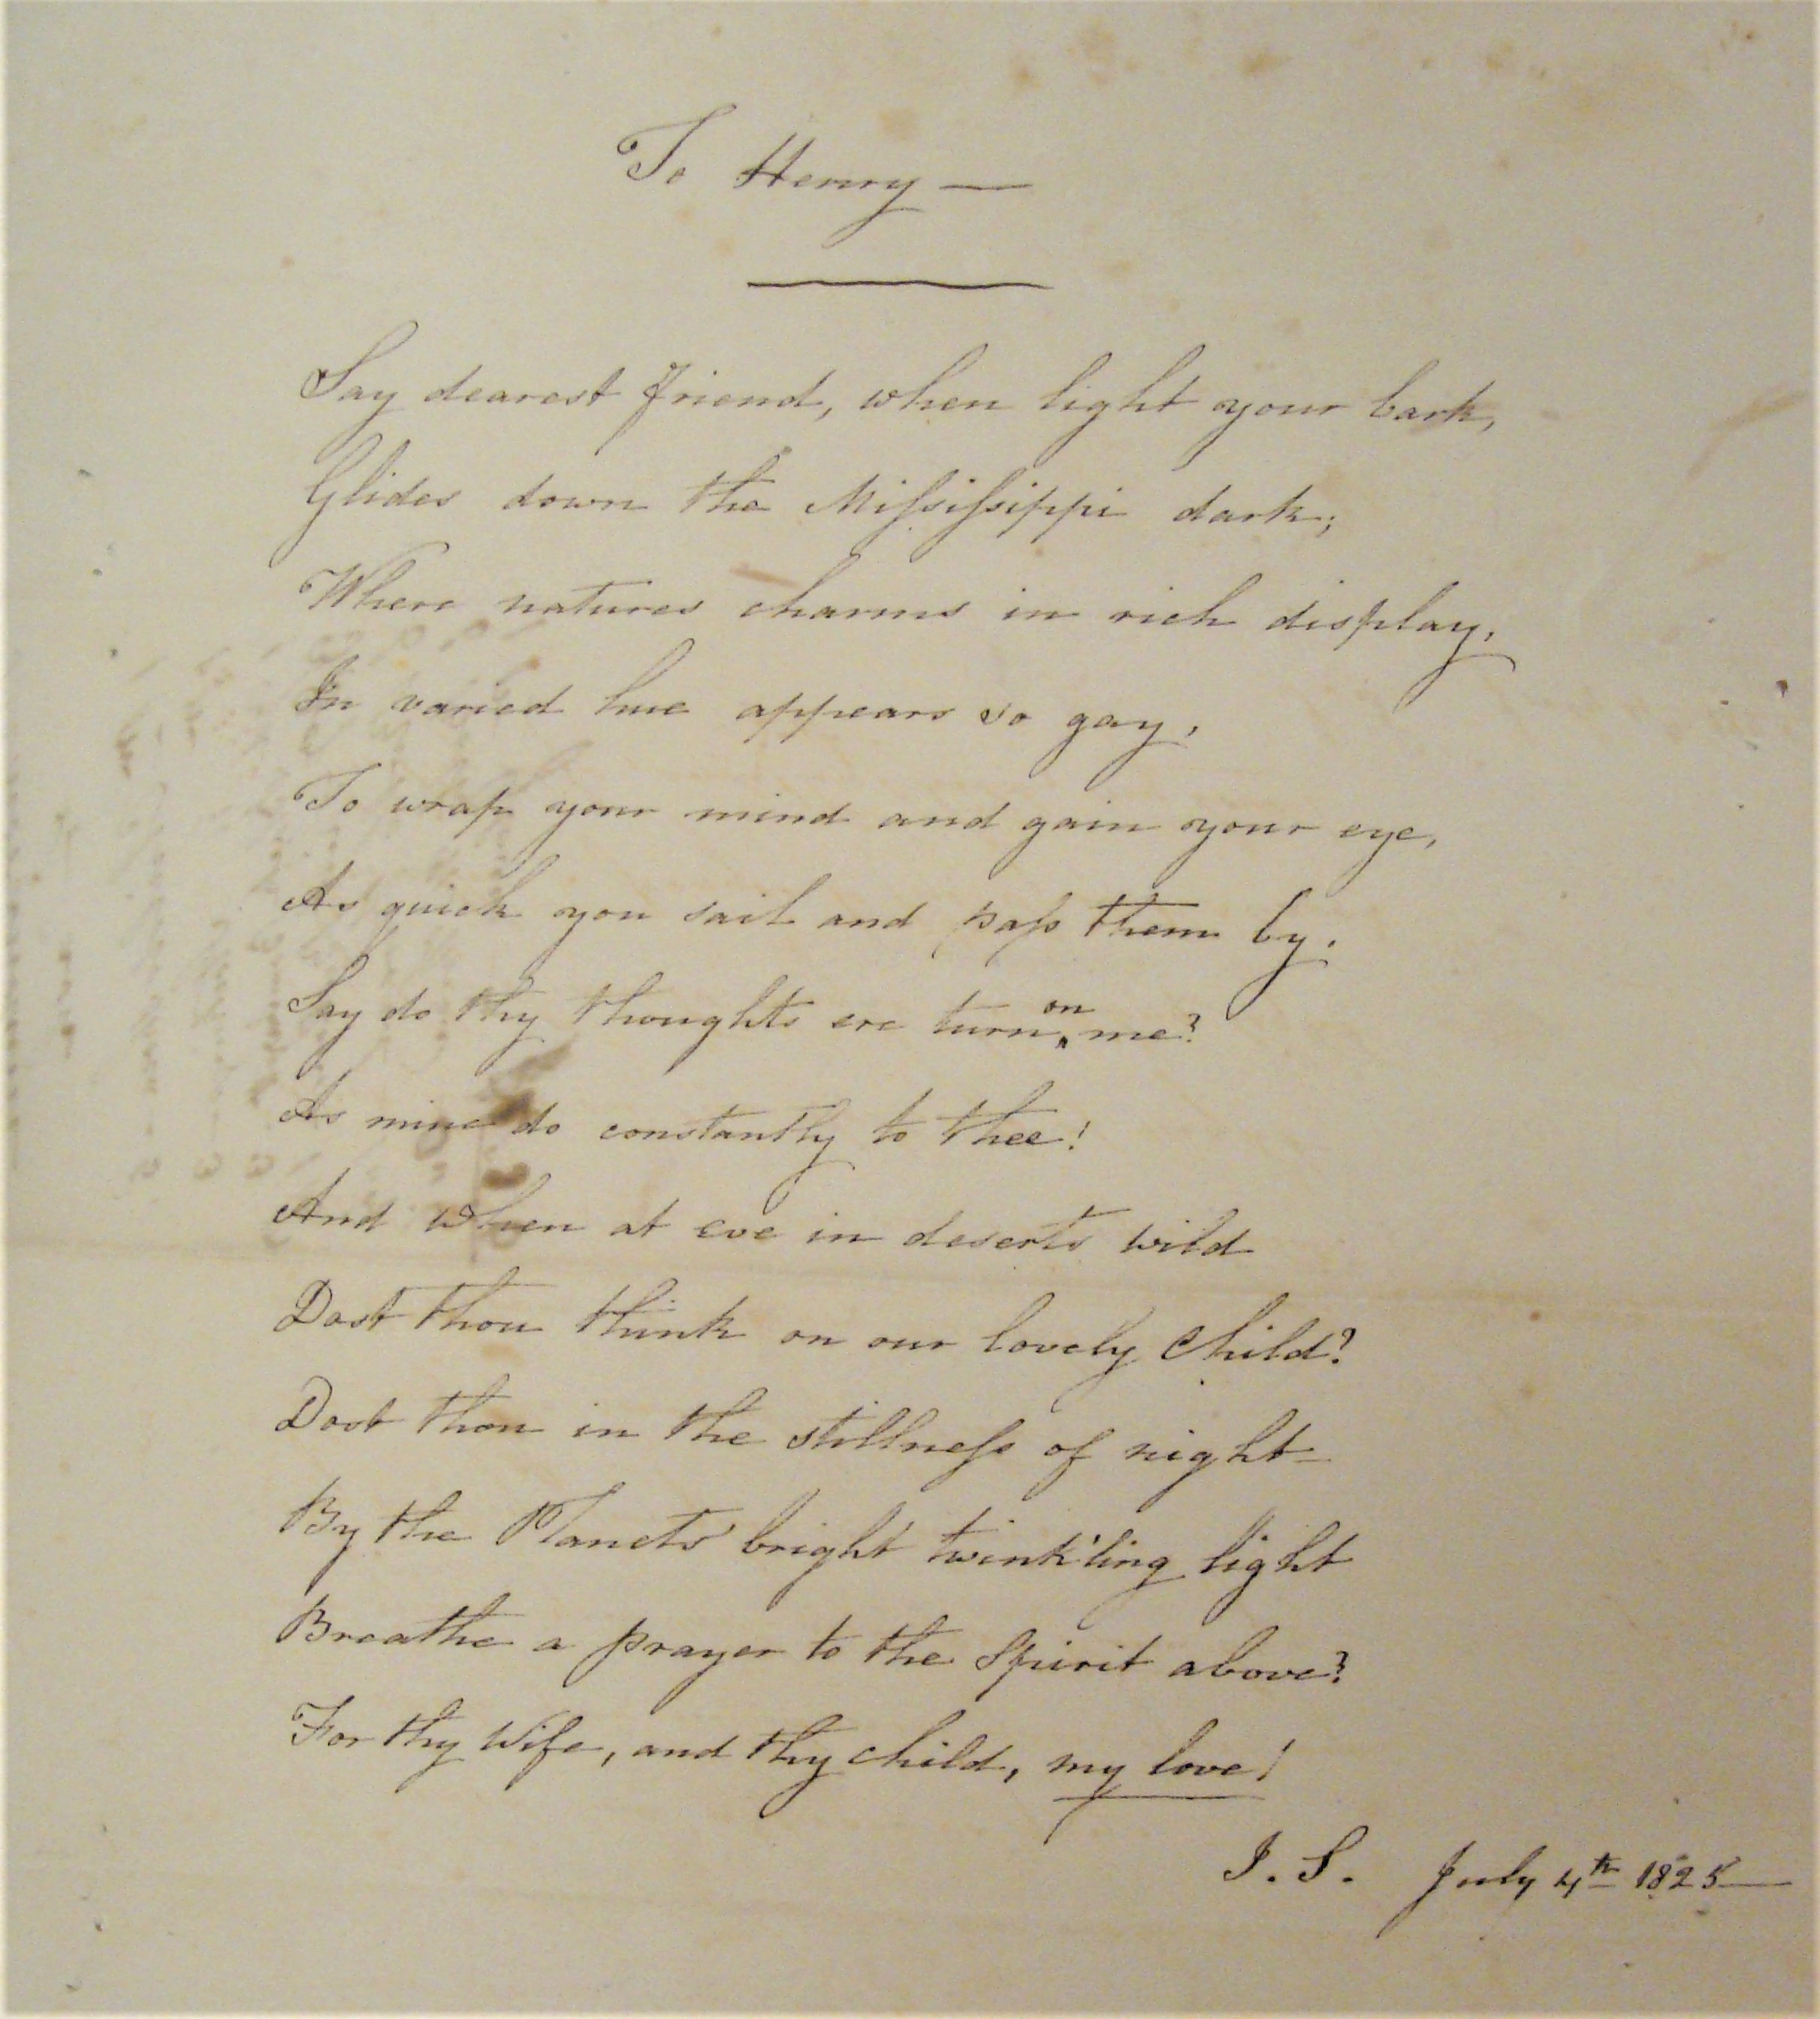 To Henry —
Say dearest friend, when light your bark,
Glides down the Miſsiſsippi dark;
Where natures charms in rich display,
In varied hue appears so gay,
To wrap your mind and gain your eye,
As quick you sail and paſs them by.
Say do thy thoughts ere turn on me?
As mine do constantly to thee!
And when at eve in deserts wild
Dost thou think on our lovely Child?
Dost thou in the stillneſs of night–
By the Planets' bright twink'ling light
Breathe a prayer to the Spirit above?
For thy Wife, and thy child, my love!
J. S. July 4th 1825